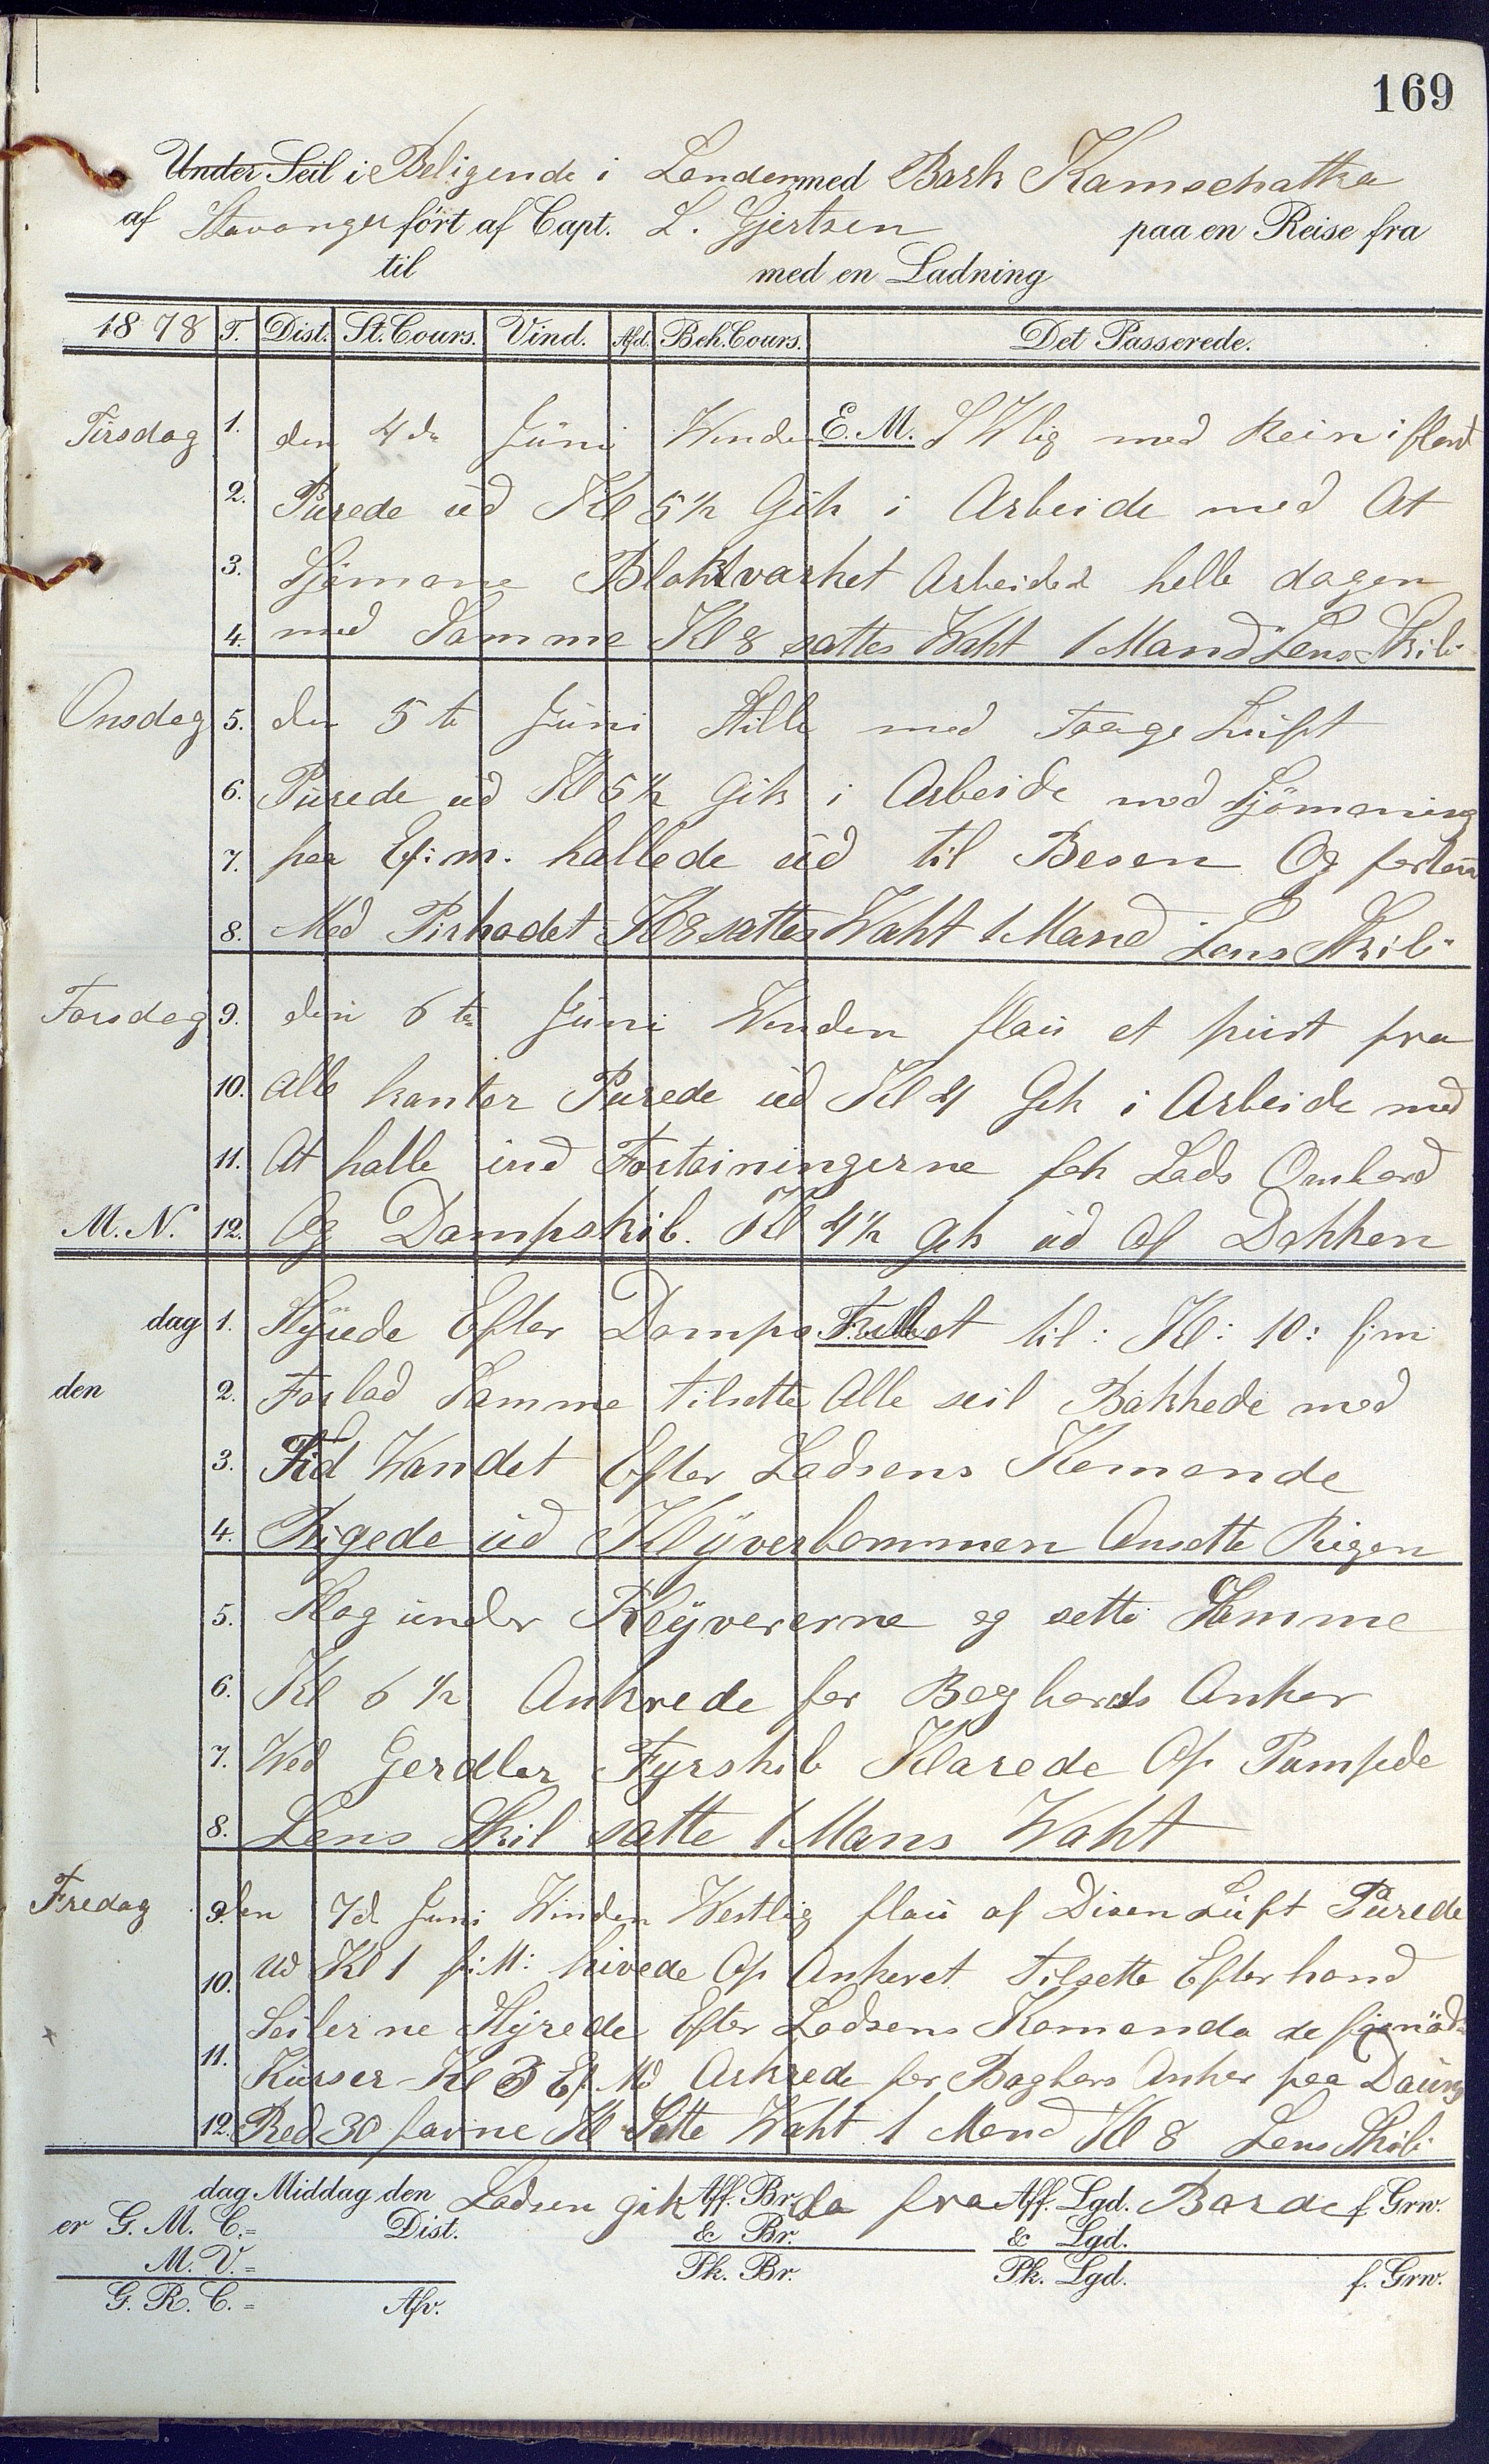 169
Under Seil i Beligende i London med Bark Kamschatka
af Stavanger fört af Capt. L. Gjertsen paa en Reise fra
til med en Ladning
1878 T. Dist. St. Cours. Vind. Afd. Beh. Cours. Det Passerede.
Tirsdag 1. den 4de Jüni Winden E. M. SWlig med Rein i fland
2. Purede üd Kl 5½ Gik i Arbeide med At
3. Sjömane Blokkvarket Arbeidet helle dagen
4. med Samme Kl 8 sattes Waht 1 Mand Lens Skib
Onsdag 5. den 5te Jüni Stille med Taage Lüft
6. Pürede üd Kl 5½ Gik i Arbeide med Sjömaning
7. paa Ef: m. hallede üd til Besen Og fortaü
8. Med Pirhodet Kl 8 sattes Waht 1 Mand Lens Skib
Torsdag 9. den 6te Jüni Winden flaü et püst fra
10. alle kanter Purede üd Kl 4 Gik i Arbeide med
11. At halle ind Fortøiningerne fek Lods Ombord
M. N. 12. Og Dampskib. Kl 4½ Gik üd Af Dokken
dag 1. Styrede Efter Damps F. M. et til: Kl: 10: f:m:
den 2. Forlod Samme tilsette Alle seil Bakkede med
3. Tid Wandet Efter Lodsens Komende
4. Rigede üd Klÿverbommen Ansatte Rigen
5. Slog ünder Klÿvererne og sette Samme
6. Kl 6½ Ankrede for Bagbords Anker
7. Wed Gerdler Fyrskib Klarede Op Pumpede
8. Lens Skib satte 1 Mans Waht
Fredag 9. den 7de Juni Winden Westlig flaü af Disen Lüft Pürede
10. Ud Kl 1 f: M: hivede Op Ankeret tilsette Efterhand
Seilerne Styrede Efter Lodsens Komando de fornöd
11. Kürser Kl 3 Ef. Md Ankrede for Bagbors Anker paa Daüns
12. Red 30 favne Kl Sette Waht 1 Mand Kl 8 Lens Skib
dag Middag den Lodsen gik Aff. Br. da fra Aff. Lgd. Borde f. Grw.
er G. M. C. = Dist. & Br. & Lgd.
M. V. = Pk. Br. Pk. Lgd. f. Grw.
G. R. C. = Afv.